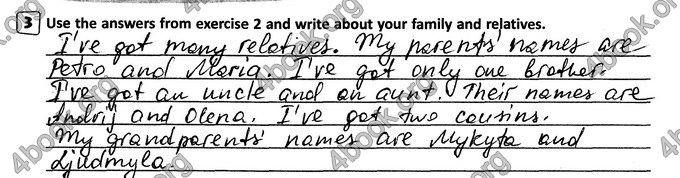 3 Use the answers from exercise 2 and write about your family and relatives.
I've got many relatives. My parents' names are
Petro and Maria. I've got only one brother.
I've got an uncle and an aunt. Their names are
Andrij and Olena. I've got two cousins.
My grandparents' names are Mykyta and
Ljudmyla.
4book.org